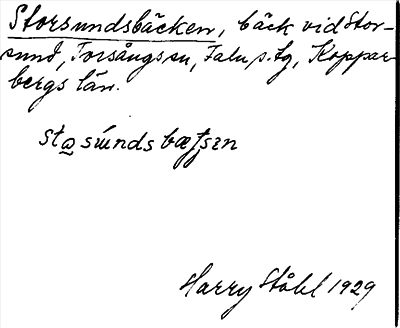 Storsundsbäcken, bäck vid Stor-
sund, Torsångs sn, Falu s. tg, Koppar-
bergs län.
Harry Ståhl 1929